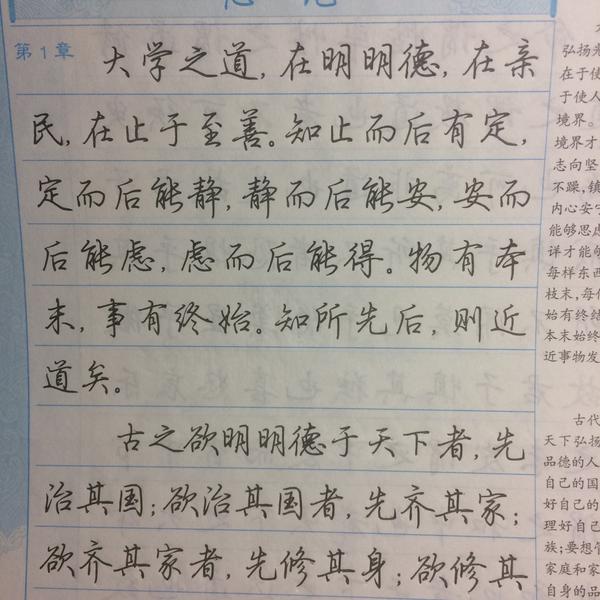 第1章
大学之道,在明明德,在亲
民,在止于至善。知止而后有定,
定而后能静,静而后能安,安而
后能虑,虑而后能得。物有本
末,事有终始。知所先后,则近
道矣。
古之欲明明德于天下者,先
治其国;欲治其国者,先齐其家;
欲齐其家者,先修其身;欲修其
弘扬光
在于使
于使人
境界。
境界才
志向坚
不躁,镇
内心安宁
能够思虑
详才能够
每样东西
枝末,每件
始有终结
本末始终
近事物发
古代
天下弘扬
品德的人
自己的国
好自己的
理好自己
族;要想管
家庭和家
自身的品